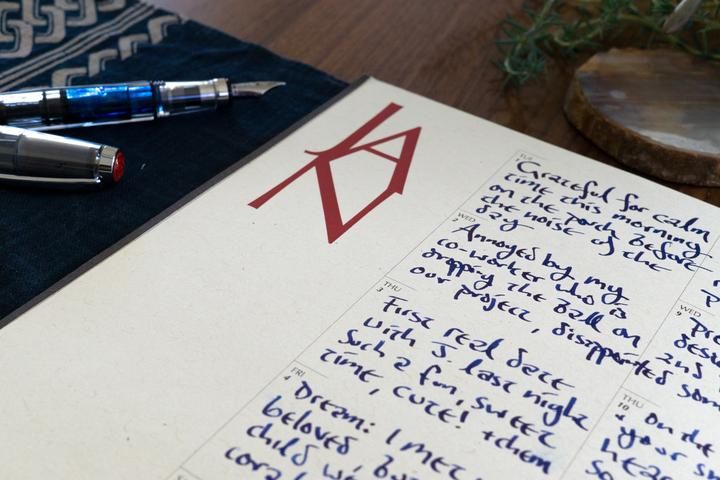 TUE
1
Grateful for calm
time this morning
on the porch before
the noise of the
day
WED
2
Annoyed by my
co-worker who is
dropping the ball on
our project, disappointed
THU
3
First real date
with J. last night
Such a fun, sweet
time, cute! them
FRI
4
Dream: I met
beloved,
child
WED
9
and
som
THU
10
On the
your